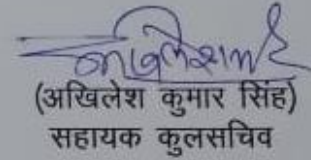 (अखिलेश कुमार सिंह)
सहायक कुलसचिव